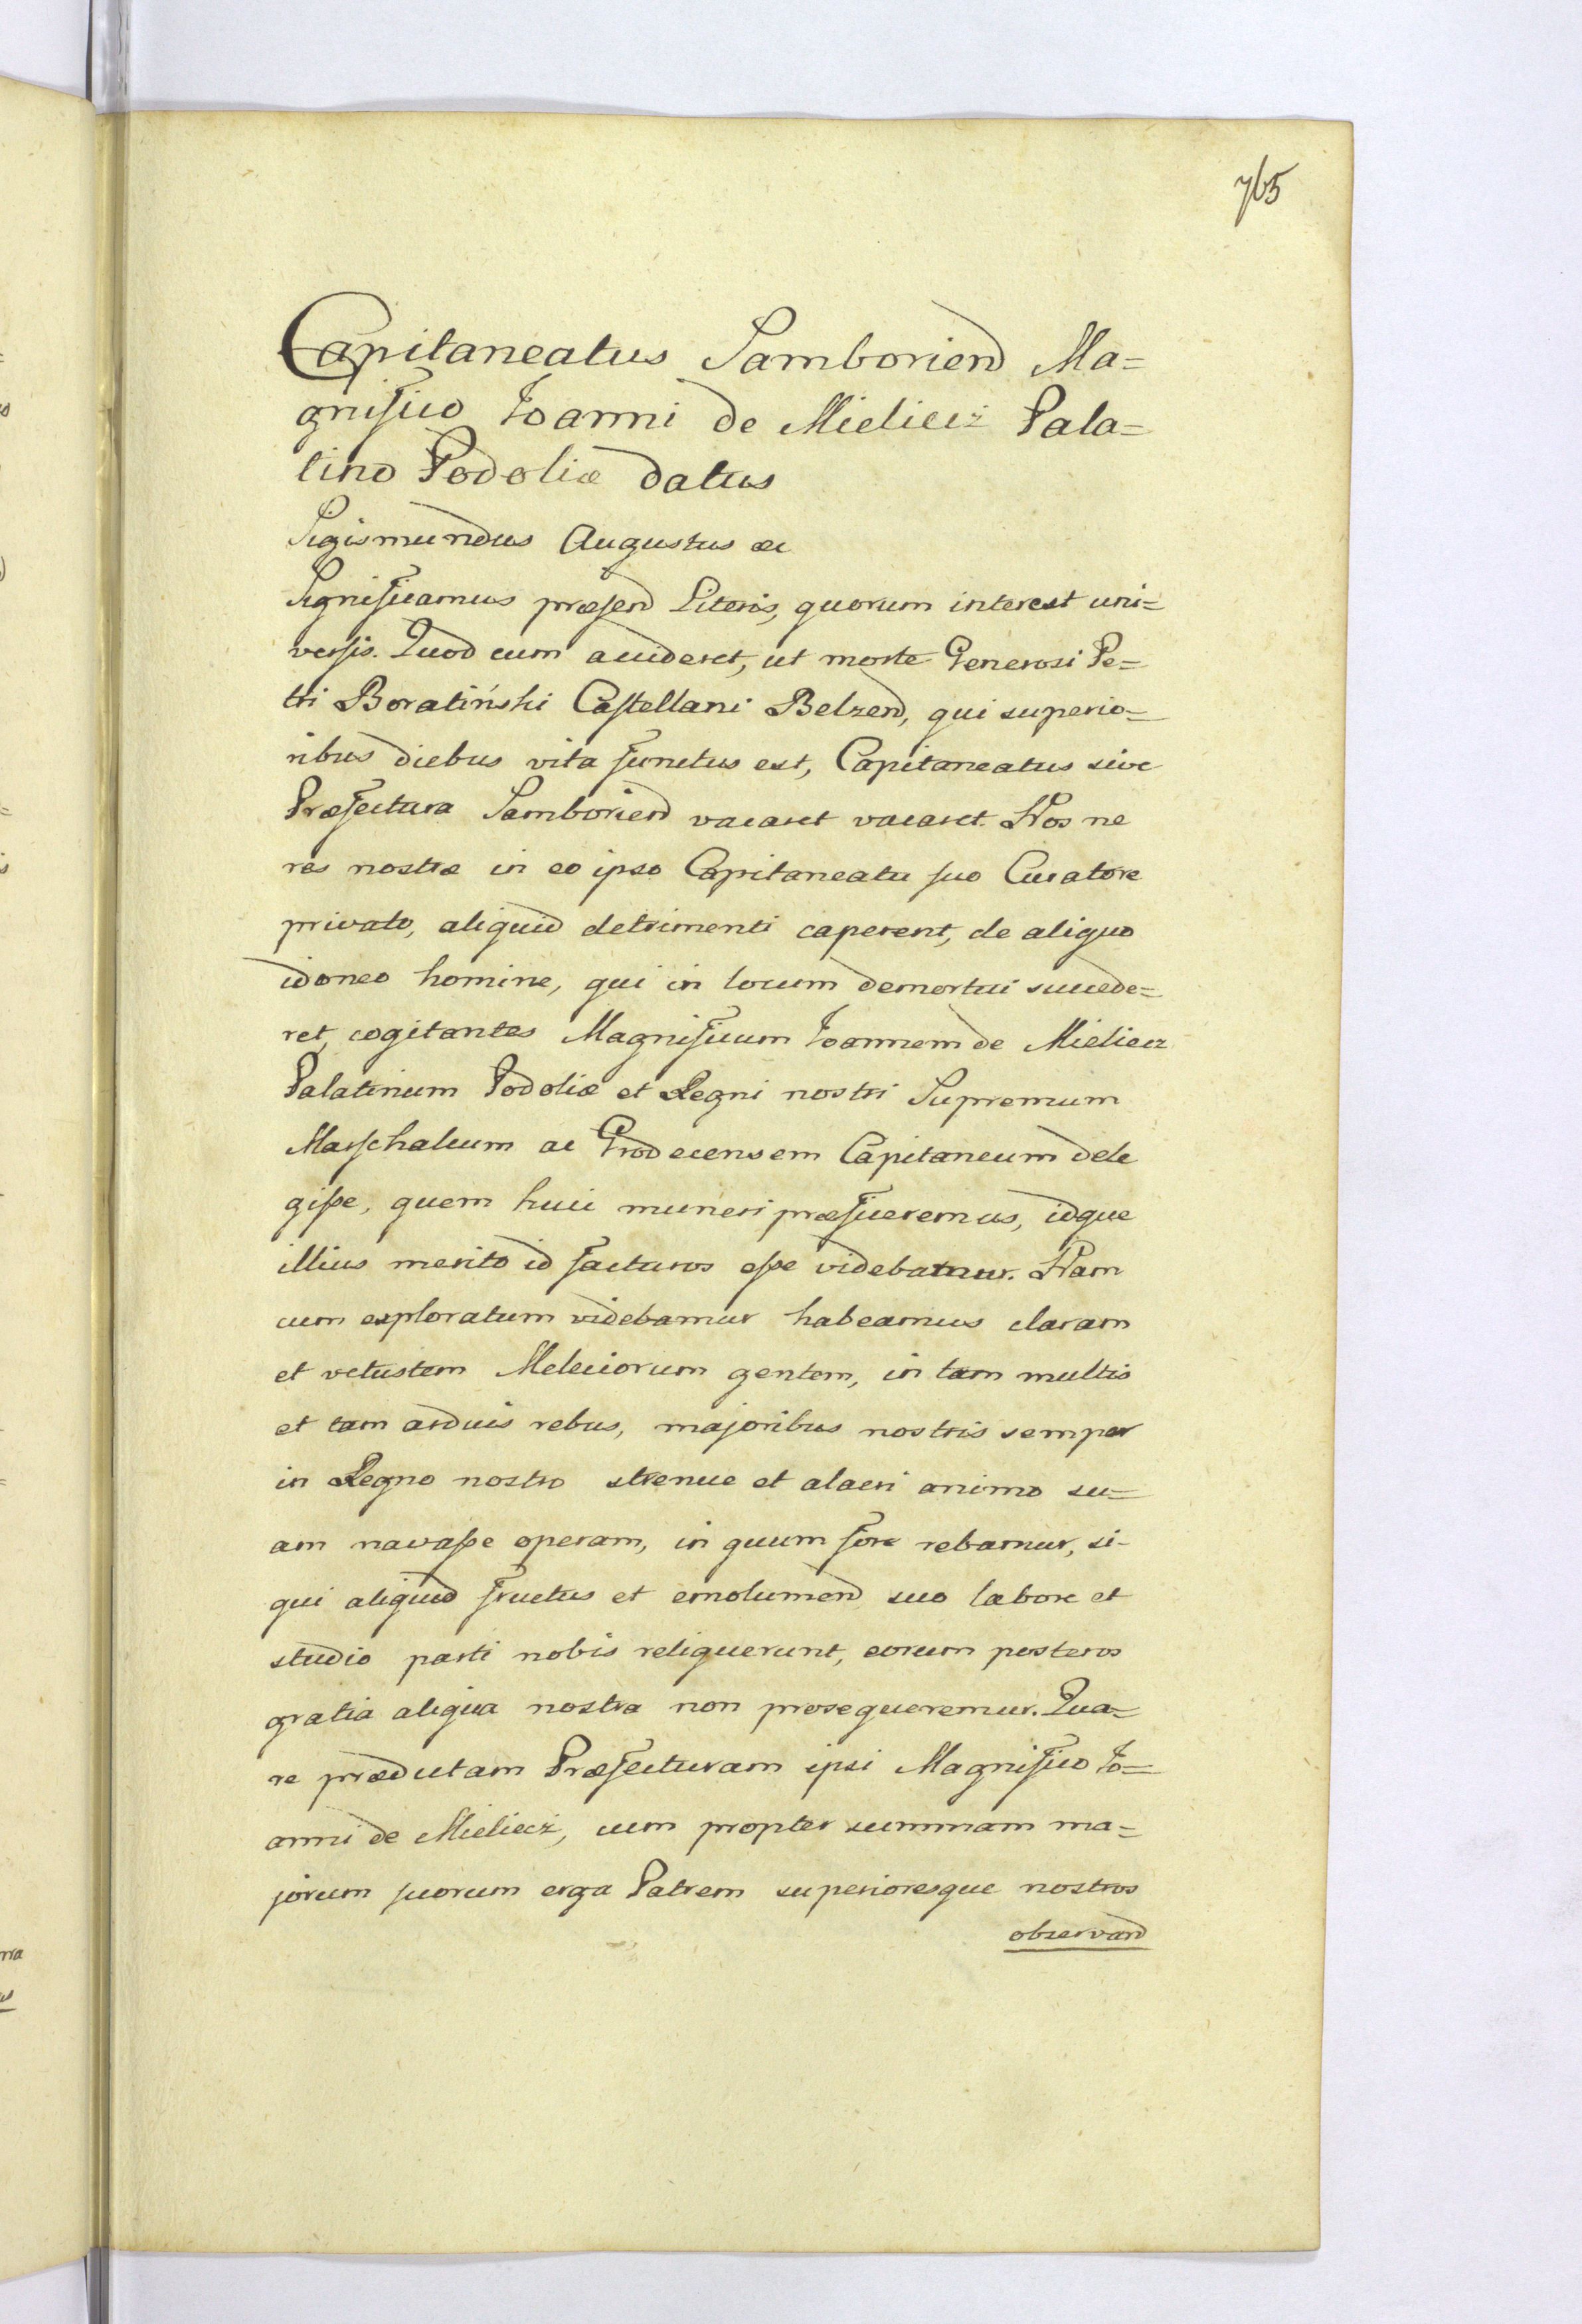 765
Capitaneatus Samborien Ma=
gnifico Joanni de Mieliecz Pala=
tino Podoliæ datus
Sigismundus Augustus &c
Significamus præsen Literis, quorum interest uni=
versis. Quod cum accideret, ut morte Generosi Pe=
tri Boratiński Castellani Belzen, qui superio=
ribus diebus vita functus est, Capitaneatus sive
Præfectura Samborien vacaret vacaret. Nos ne
res nostræ in eo ipso Capitaneatu suo Curatore
privato, aliquid detrimenti caperent, de aliquo
idoneo homine, qui in locum demortui succede=
ret, cogitantes Magnificum Joannem de Mieliecz
Palatinum Podoliæ et Regni nostri Supremum
Marschalcum ac Grodecensem Capitaneum dele
gisse, quem huic muneri præficeremus, idque
illius merito id facturos esse videbamur. Nam
cum exploratum videbamur habeamus claram
et vetustam Meleciorum gentem, in tam multis
et tam arduis rebus, majoribus nostris semper
in Regno nostro strenue et alacri animo su=
am navasse operam, in quum fore rebamur, si-
qui aliquid fructus et emolumen suo labore et
studio parti nobis reliquerunt, eorum posteros
gratia aliqua nostra non prosequeremur. Qua=
re prædictam Præfecturam ipsi Magnifico Jo=
anni de Mieliecz, cum propter summam ma=
jorum suorum erga Patrem superioresque nostros
observan